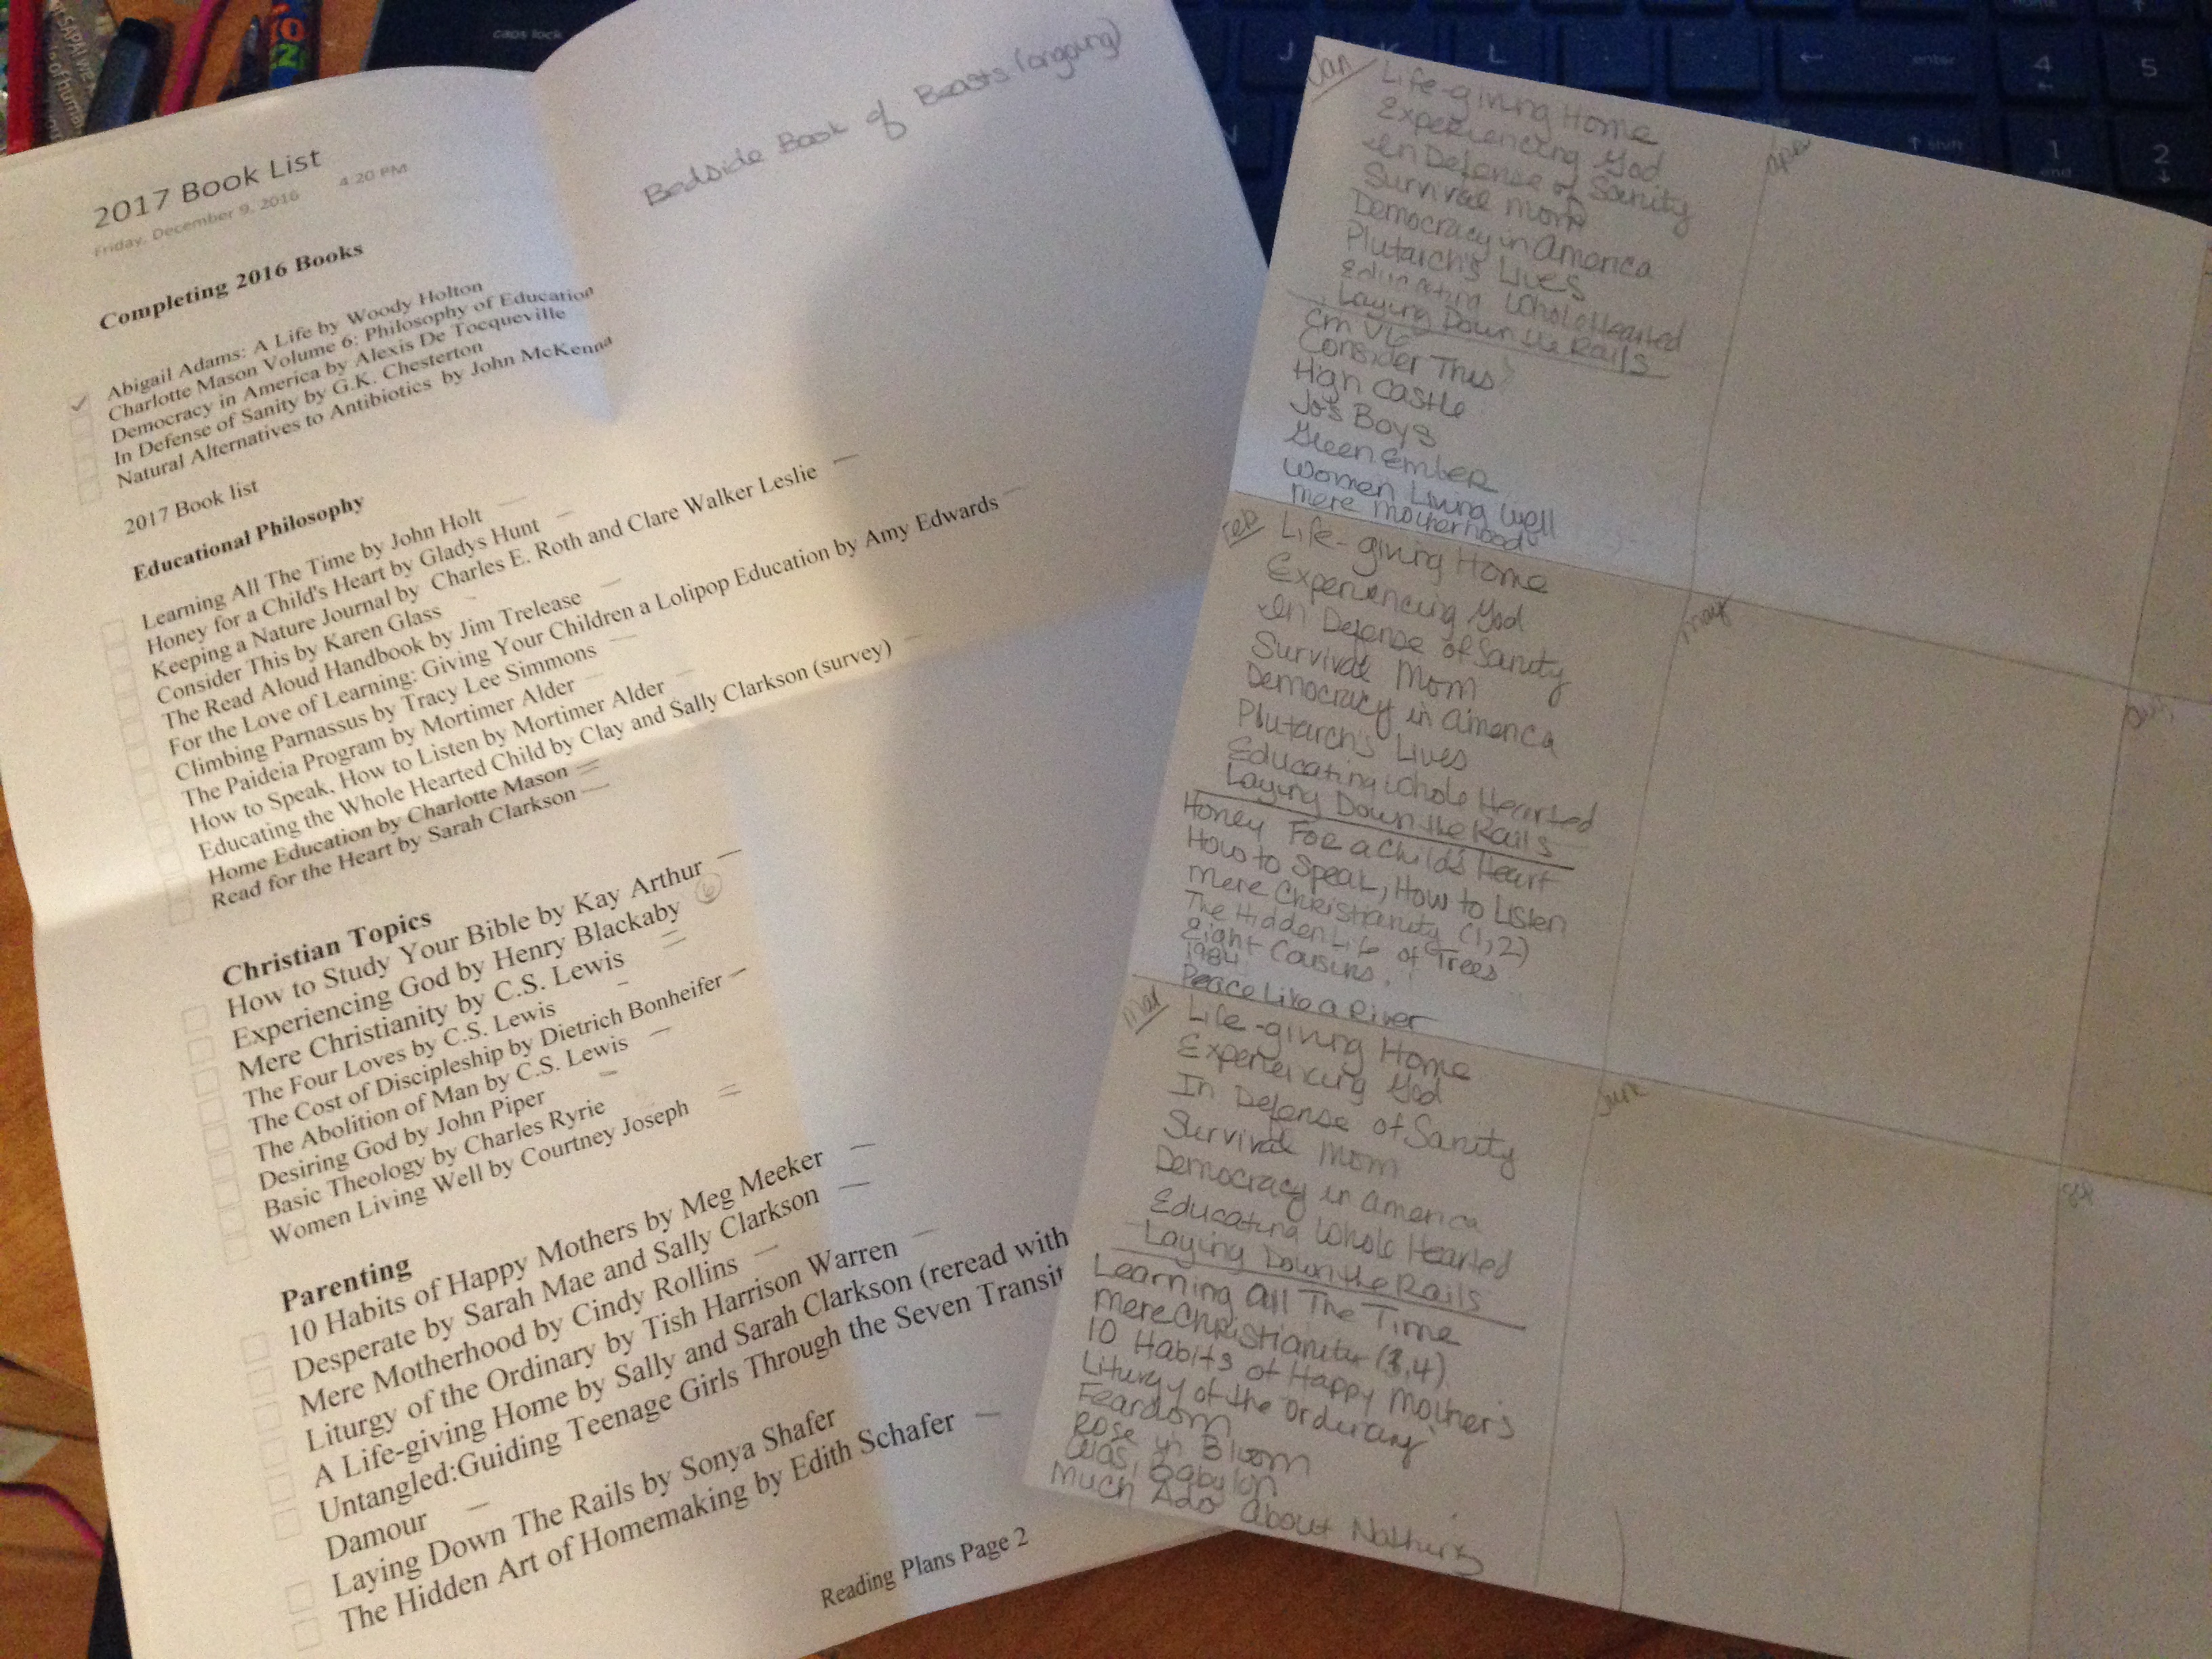 2017 Book List
Friday, December 9, 2016 4:20 PM
Bedside Book of Beasts (ongoing)
Completing 2016 Books
Abigail Adams: A Life by Woody Holton
Charlotte Mason Volume 6: Philosophy of Education
Democracy in America by Alexis De Tocqueville
In Defense of Sanity by G.K. Chesterton
Natural Alternatives to Antibiotics by John McKenna
2017 Book list
Educational Philosophy
Learning All The Time by John Holt
Honey for a Child's Heart by Gladys Hunt
Keeping a Nature Journal by Charles E. Roth and Clare Walker Leslie
Consider This by Karen Glass
The Read Aloud Handbook by Jim Trelease
For the Love of Learning: Giving Your Children a Lolipop Education by Amy Edwards
Climbing Parnassus by Tracy Lee Simmons
The Paideia Program by Mortimer Alder
How to Speak, How to Listen by Mortimer Alder
Educating the Whole Hearted Child by Clay and Sally Clarkson (survey)
Home Education by Charlotte Mason
Read for the Heart by Sarah Clarkson
Christian Topics
How to Study Your Bible by Kay Arthur
Experiencing God by Henry Blackaby 6
Mere Christianity by C.S. Lewis
The Four Loves by C.S. Lewis
The Cost of Discipleship by Dietrich Bonheifer
The Abolition of Man by C.S. Lewis
Desiring God by John Piper
Basic Theology by Charles Ryrie
Women Living Well by Courtney Joseph
Parenting
10 Habits of Happy Mothers by Meg Meeker
Desperate by Sarah Mae and Sally Clarkson
Mere Motherhood by Cindy Rollins
Liturgy of the Ordinary by Tish Harrison Warren
A Life-giving Home by Sally and Sarah Clarkson (reread with
Untangled:Guiding Teenage Girls Through the Seven Transit
Damour
Laying Down The Rails by Sonya Shafer
The Hidden Art of Homemaking by Edith Schafer
Reading Plans Page 2
Jan
Life-giving Home
Experiencing God
In Defense of Sanity
Survival Mom
Democracy in America
Plutarch's Lives
Educating Whole Hearted
Laying Down the Rails
CM VI
Consider This
High Castle
Jo's Boys
Green Ember
Women Living Well
Mere Motherhood
Feb
Life-giving Home
Experiencing God
In Defense of Sanity
Survival Mom
Democracy in America
Plutarch's Lives
Educating Whole Hearted
Laying Down the Rails
Honey For a Child's Heart
How to Speak, How to Listen
Mere Christianity (1,2)
The Hidden Life of Trees
Eight Cousins
1984
Peace Like a River
Mar
Life-giving Home
Experiencing God
In Defense of Sanity
Survival Mom
Democracy in America
Educating Whole Hearted
Laying Down the Rails
Learning All The Time
Mere Christianity (3,4)
10 Habits of Happy Mothers
Liturgy of the Ordinary
Feardom
Rose in Bloom
Was, Babylon
Much Ado About Nothing
Apr
May
June
caps lock
J
K
L
enter
shift
4
5
1
end
2